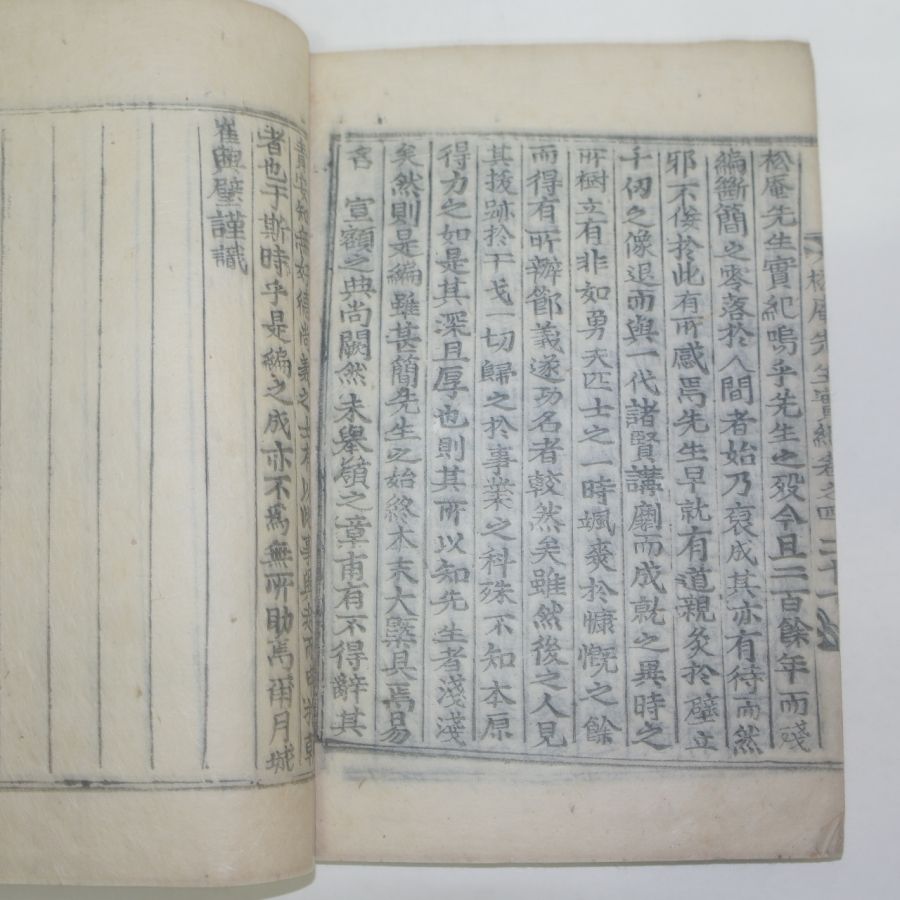 松庵先生實紀卷之四 三十一
松庵先生實紀嗚乎先生之歿今且三百餘年而殘
編斷簡之零落於人間者始乃裒成其亦有待而然
邪不佞於此有所感焉先生早就有道親炙於壁立
千仞之像退而與一代諸賢講劘而成就之異時之
所樹立有非如勇夫匹士之一時颯爽於慷慨之餘
而得有所辦節義遂功名者較然矣雖然後之人見
其拔跡於干戈一切歸之於事業之科殊不知本原
得力之如是其深且厚也則其所以知先生者淺淺
矣然則是編雖甚簡先生之始終本末大槩具焉易
名 宣額之典尚闕然未擧嶺之章甫有不得辭其
者也于斯時乎是編之成亦不爲無所助焉甭月城
崔興璧謹識